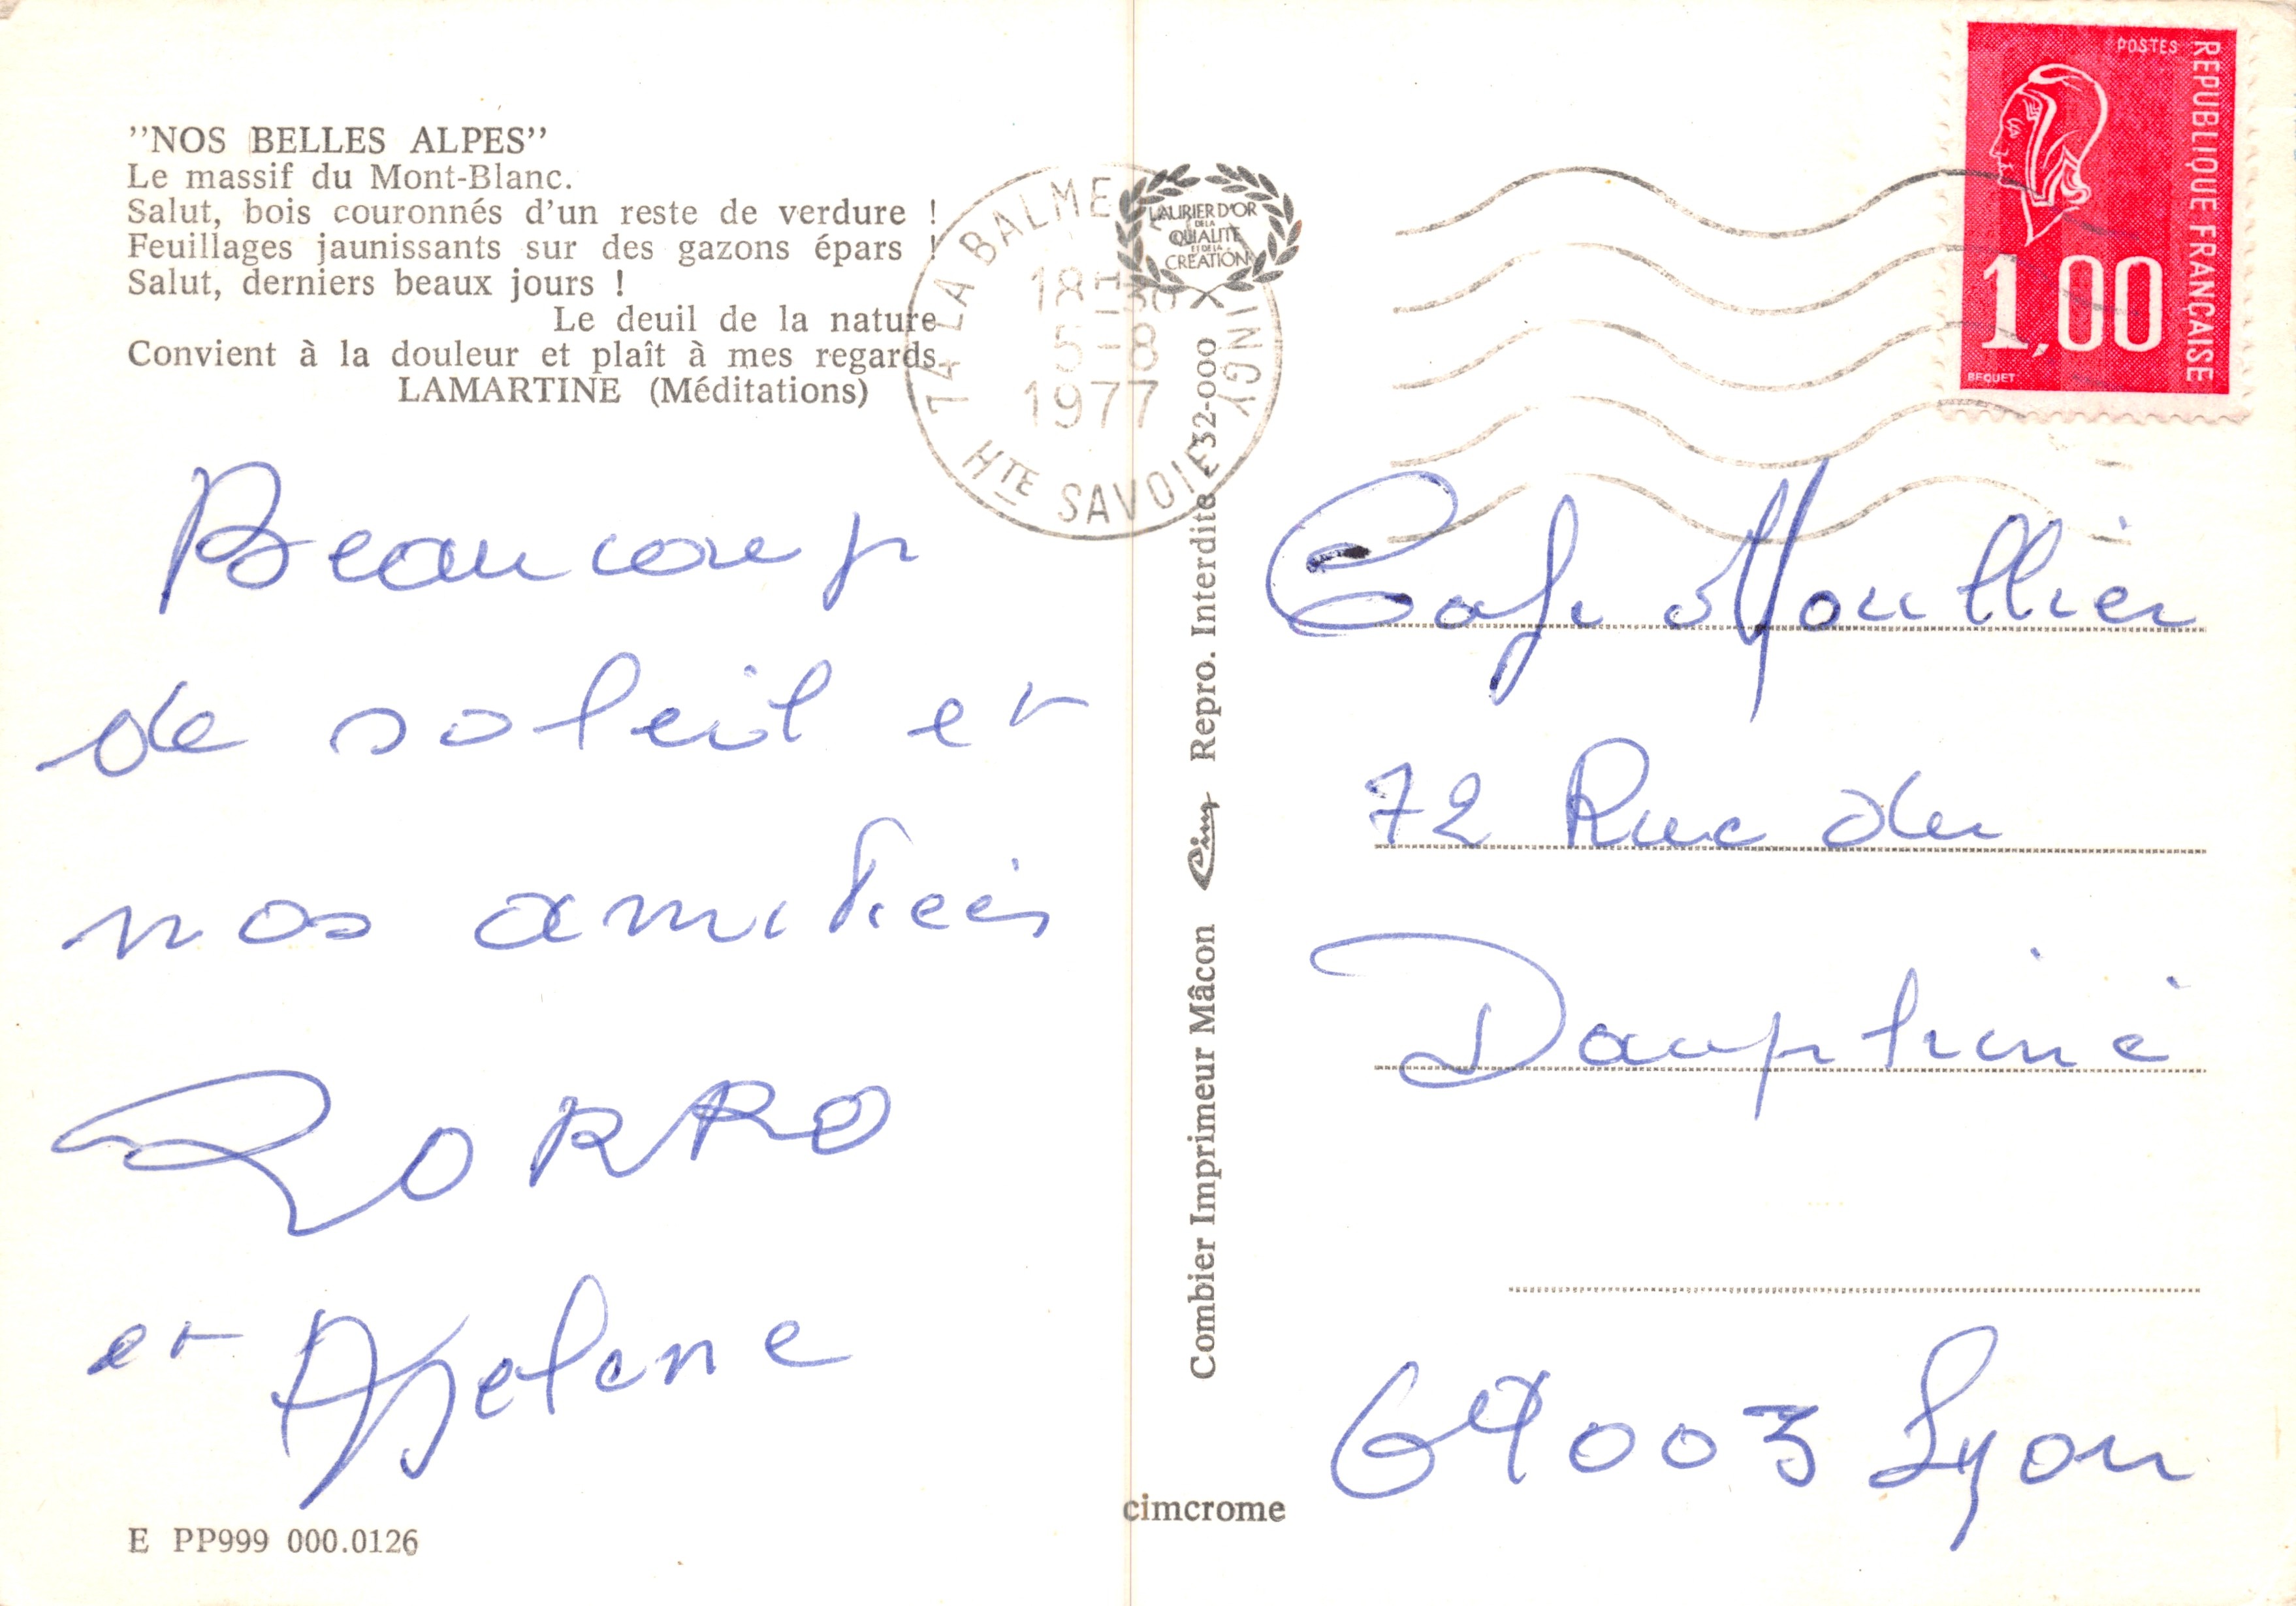 "NOS BELLES ALPES"
Le massif du Mont-Blanc.
Salut, bois couronnés d'un reste de verdure !
Feuillages jaunissants sur des gazons épars !
Salut, derniers beaux jours !
Le deuil de la nature
Convient à la douleur et plaît à mes regards.
LAMARTINE (Méditations)
Beaucoup
de soleil et
nos amitiés
ZORRO
et Helene
E PP999 000.0126
74 LA BALME INGY
18H30
5-8
1977
HTE SAVOIE
LAURIER D'OR
DE LA
QUALITE
ET DE LA
CREATION
Combier Imprimeur Mâcon Cim Repro. Interdite 32-000
cimcrome
POSTES
REPUBLIQUE FRANÇAISE
1,00
BEQUET
Cafe Moullier
72 Rue du
Dauphiné
69003 Lyon